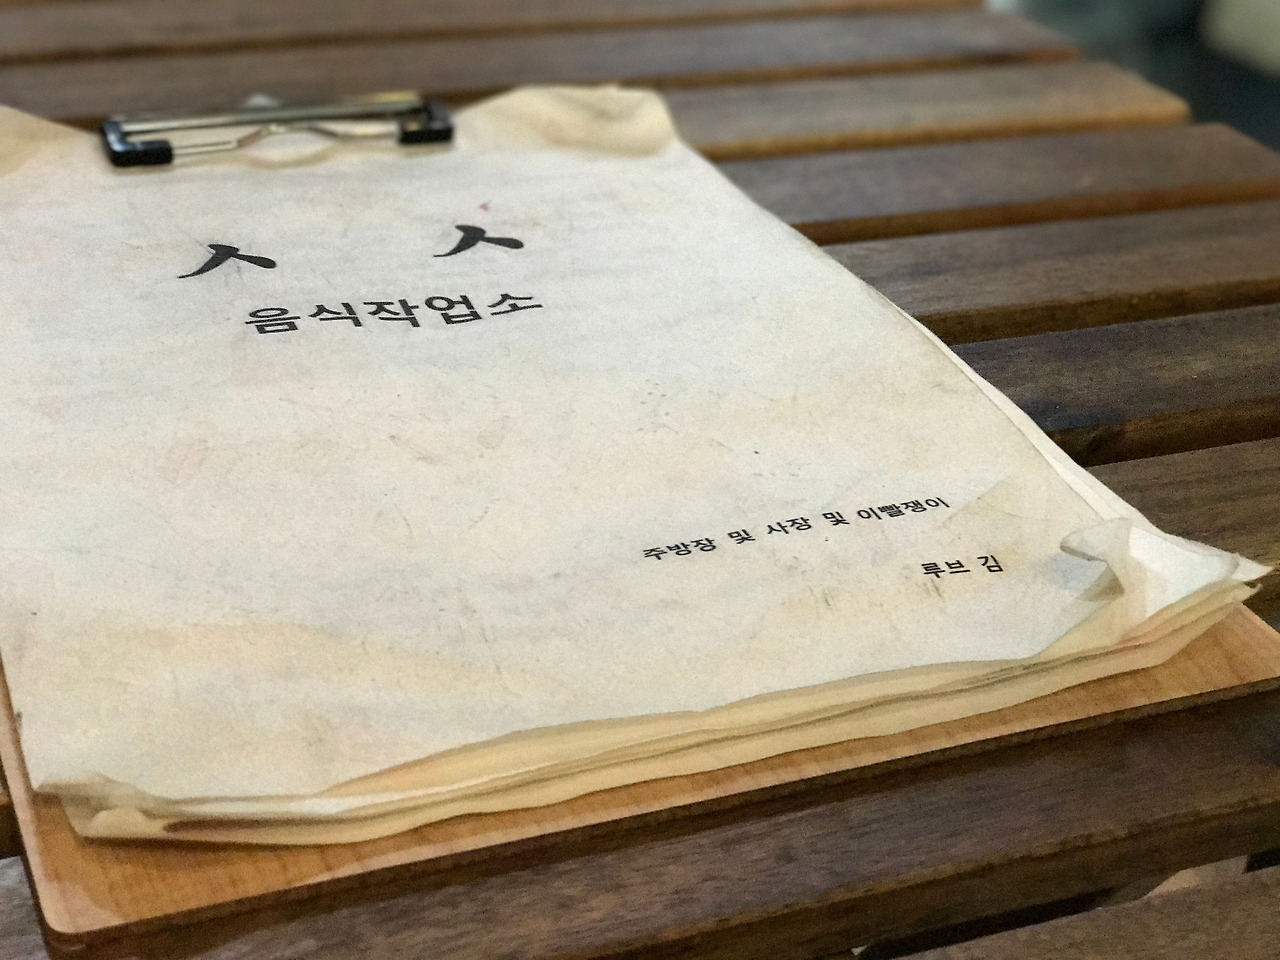 ㅅ ㅅ
음식작업소
주방장 및 사장 및 이빨쟁이
루브 김